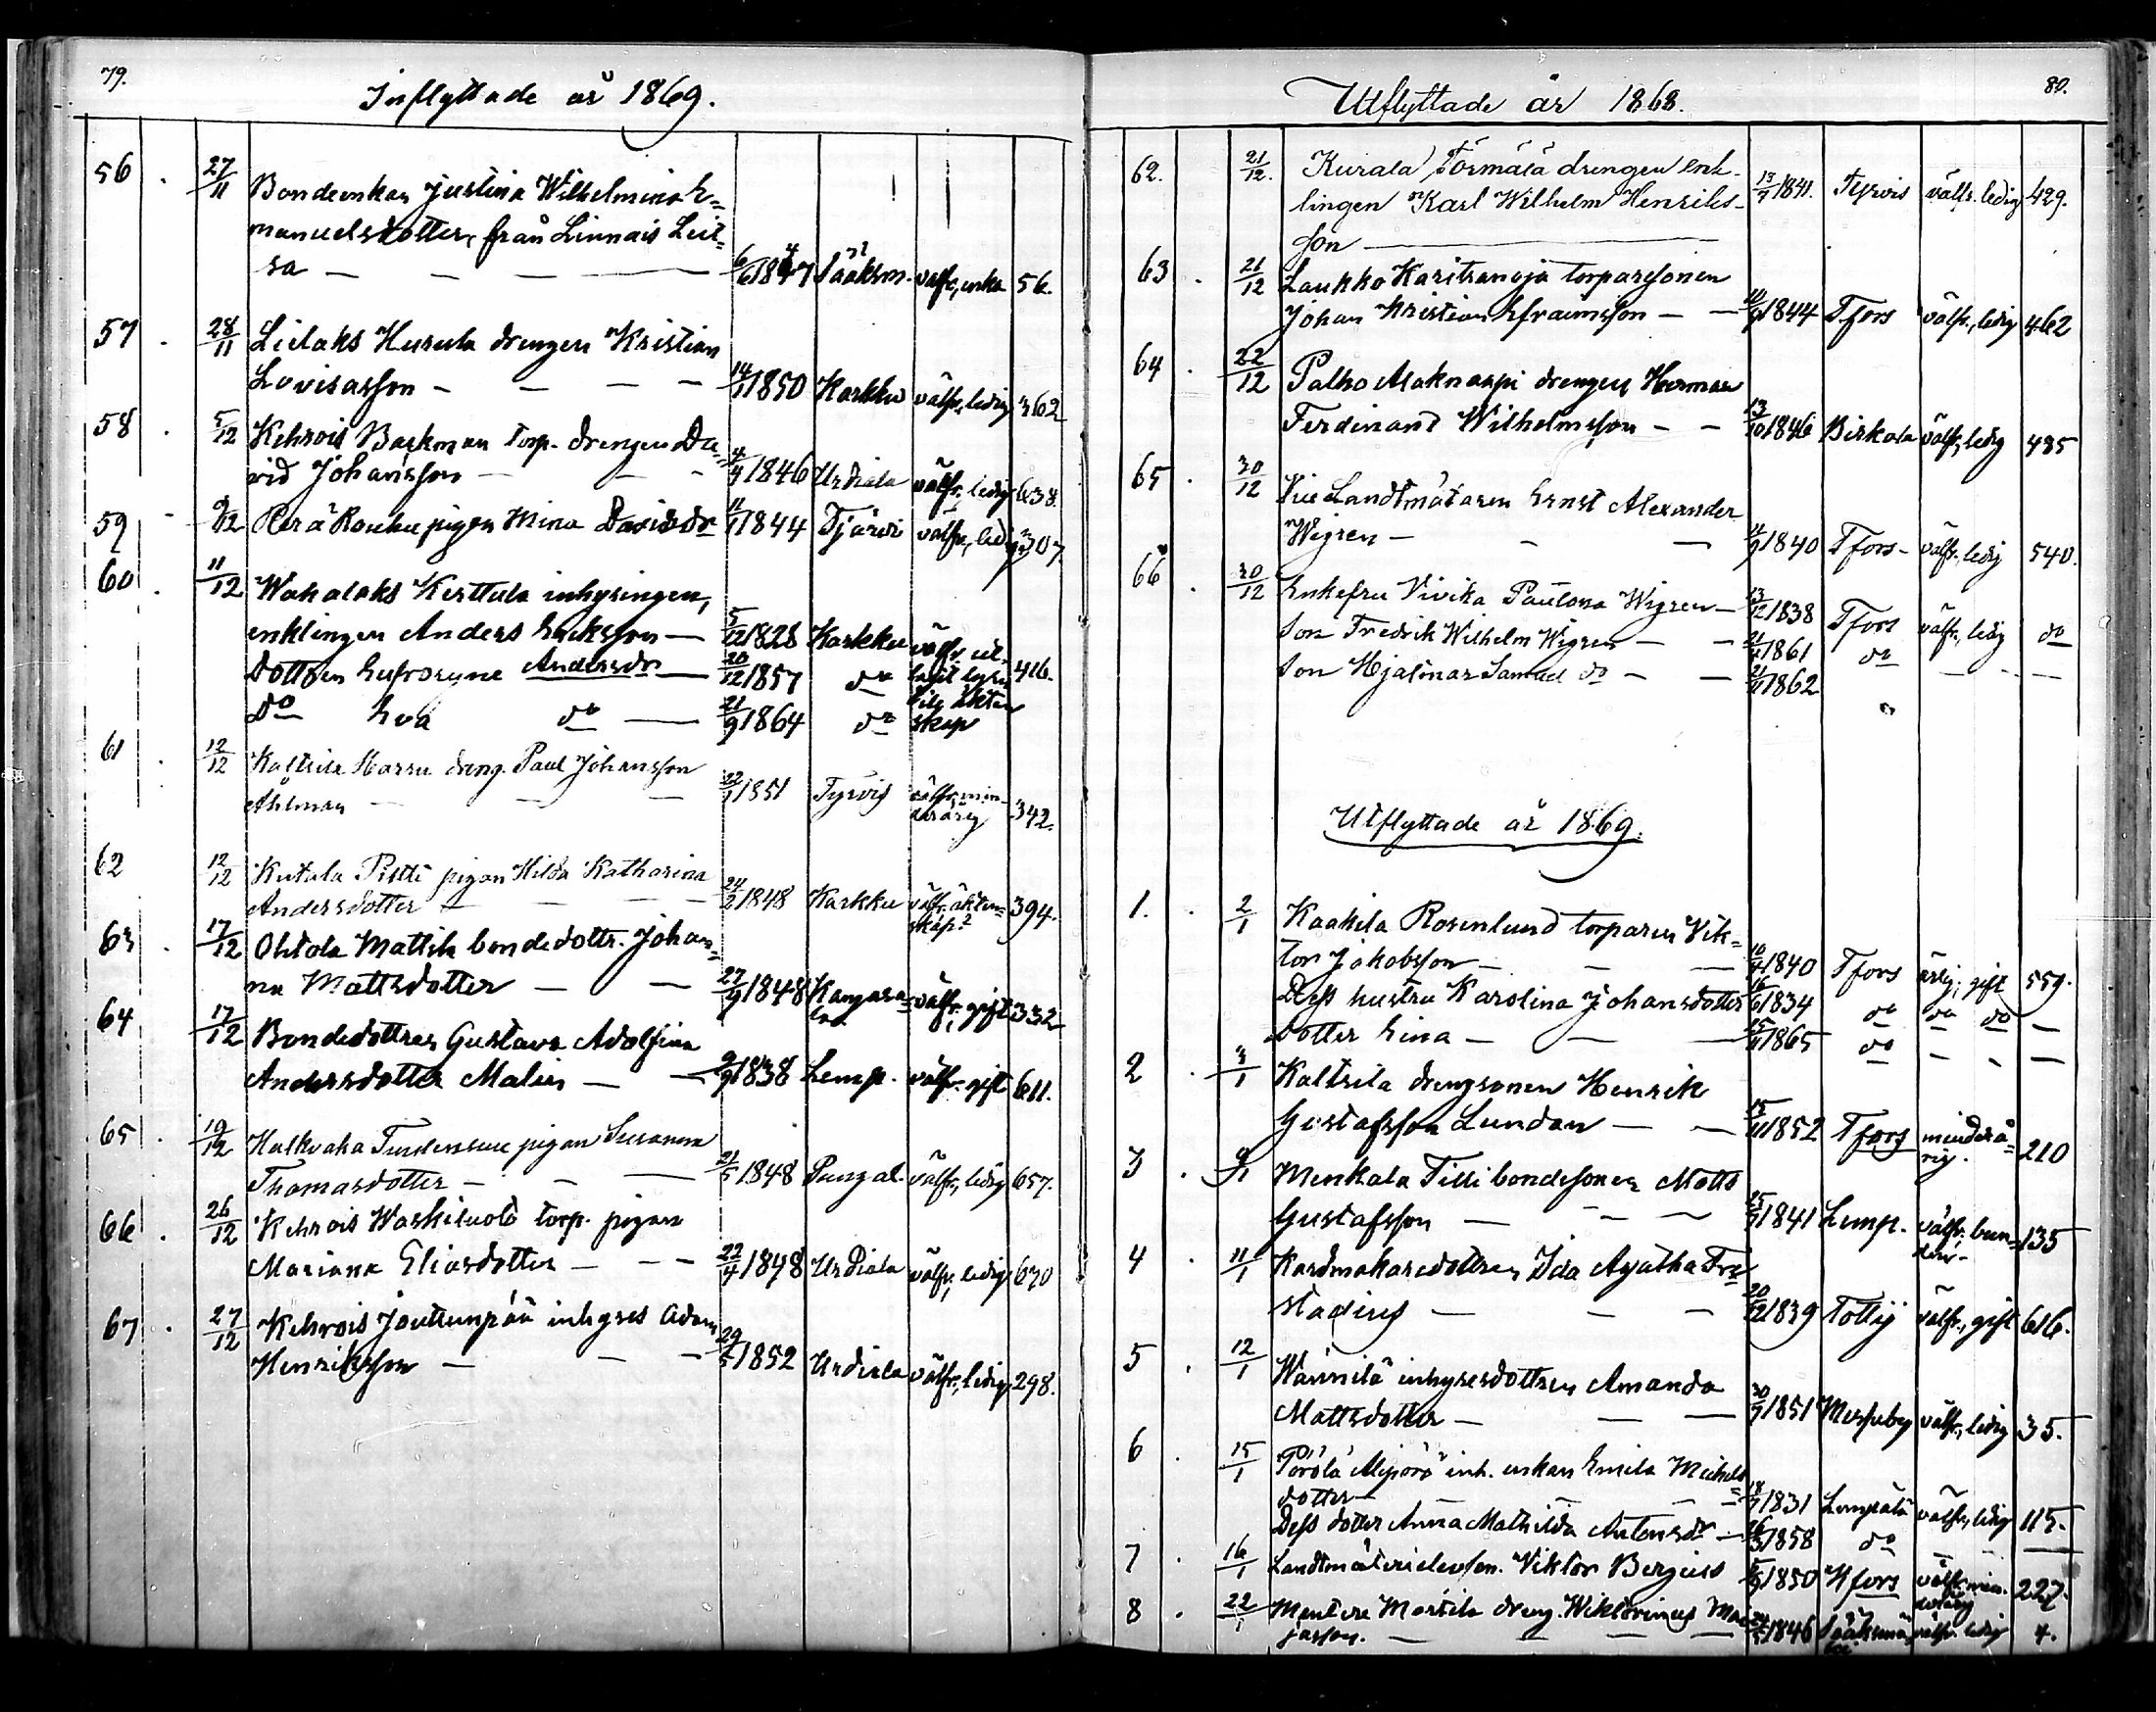 79.
Inflyttade år 1869.
56 . 27/11 Bondeenkan Justina Wilhelmina E=
manuelsdotter, från Linnais Leil=
sa — — — 6/6 1847 Sääksm. välfr., enka 56.
57 . 28/11 Lielaks Hursula drengen Kristian
Lovisasson — — — — 14/1 1850 Karkku välfr., ledig 362
58 . 5/12 Kehrois Backman torp. drengen Da=
vid Johansson — — — 4/9 1846 Urdiala välfr., ledig 638.
59 - 9/12 Perä Rouhu pigan Mina Davidsdr 11/1 1844 Tjärvi välfr., ledig 307.
60 . 11/12 Wahalaks Kerttula inhysingen,
enklingen Anders Eriksson — 5/12 1828 Karkku välfr. ut-
Dottren Eufrosyne Andersdr — 20/12 1857 do tagit lysn. 416.
do Eva do — 21/9 1864 do till äkten skap
61 . 12/12 Kaltsila Harsu dreng. Paul Johansson
Åhlman — — — 22/1 1851 Tyrvis välfr., min-
derårig 342.
62 12/12 Kutala Pittti pigan Hilda Katharina
Andersdotter — — — 24/2 1848 Karkku välfr. äkten=
skap? 394.
63 . 17/12 Ohtola Mattila bondedottr. Johan=
na Mattsdotter — — 27/9 1848 Kangasa=
la välfr., gift 332
64 17/12 Bondedottren Gustava Adolfina
Andersdotter Malin — — 9/9 1838 Lemp. välfr. gift 611.
65 . 19/12 Halkivaha Tundensuu pigan Susanna
Thomasdotter — — — 21/5 1848 Pungal. välfr., ledig 657.
66 . 26/12 Kehrois Waskiluoto torp. pigan
Mariana Eliasdotter — — — 22/4 1848 Urdiala välfr., ledig 670
67 . 27/12 Kehrois Jouttunpää inhyses Adam
Henriksson — — — 29/5 1852 Urdiala välfr., ledig 298.
80.
Utflyttade år 1868.
62. 21/12. Kurala, Törmälä drengen enk-
lingen Karl Wilhelm Henriks-
son — 13/7 1841. Tyrvis välfr. ledig 429.
63 . 21/12 Laukko Karitsanoja torparesonen
Johan Kristian Efraimsson — — 10/9 1844 Tfors välfr., ledig 462
64 . 22/12 Palho Alaknaapi drengen Herman
Ferdinand Wilhelmsson — — 13/10 1846 Birkala välfr., ledig 485
65 . 30/12 Vice Landtmätaren Ernst Alexander
Wigren — — — 4/9 1840 Tfors - välfr., ledig 540.
66 . 30/12 Enkefru Vivika Paulona Wigren — 13/12 1838 Tfors välfr., ledig do
Son Fredrik Wilhelm Wigren — — 21/4 1861 do — —
Son Hjalmar Samuel do — — 21/11 1862 "
Utflyttade år 1869.
1. . 2/1 Kaakila Rosenlund torparen Vik=
tor Jakobsson — — — 10/4 1840 Tfors ärlig, gift 559.
Dess hustru Karolina Johansdotter 16/6 1834 do do do —
Dotter Lina — — — 25/11 1865 do — — —
2 . 3/1 Kaltsila drengsonen Henrik
Gustafsson Lundan — — 15/11 1852 Tfors minderå=
rig. 210
3 . 9/1 Menkala Tilli bondesonen Matts
Gustafsson — — — 25/7 1841 Lemp. välfr., bun=
den - 135
4 . 11/1 Kardmakaredottren Ida Agatha Fre=
stadius — — — 20/12 1839 Tottij välfr., gift 616.
5 . 12/1 Wännilä inhysesdottren Amanda
Mattsdotter — — — 30/7 1851 Messuby välfr., ledig 35.
6 . 15/1 Pörölä Alipörö inh. enkan Emila Michels=
dotter — — — 18/7 1831 Lempälä välfr., ledig 115.
Dess dotter Anna Mathilda Antonsdr — 26/3 1858 do — — —
7 . 16/1 Landtmäterieleven. Viktor Bergius 5/9 1850 Hfors välfr. min-
derårig 227.
8 . 22/1 Mantere Martila dreng. Wiktorinus Ma=
jasson. — — — 24/5 1846 Sääksmä= välfr. ledig 4.